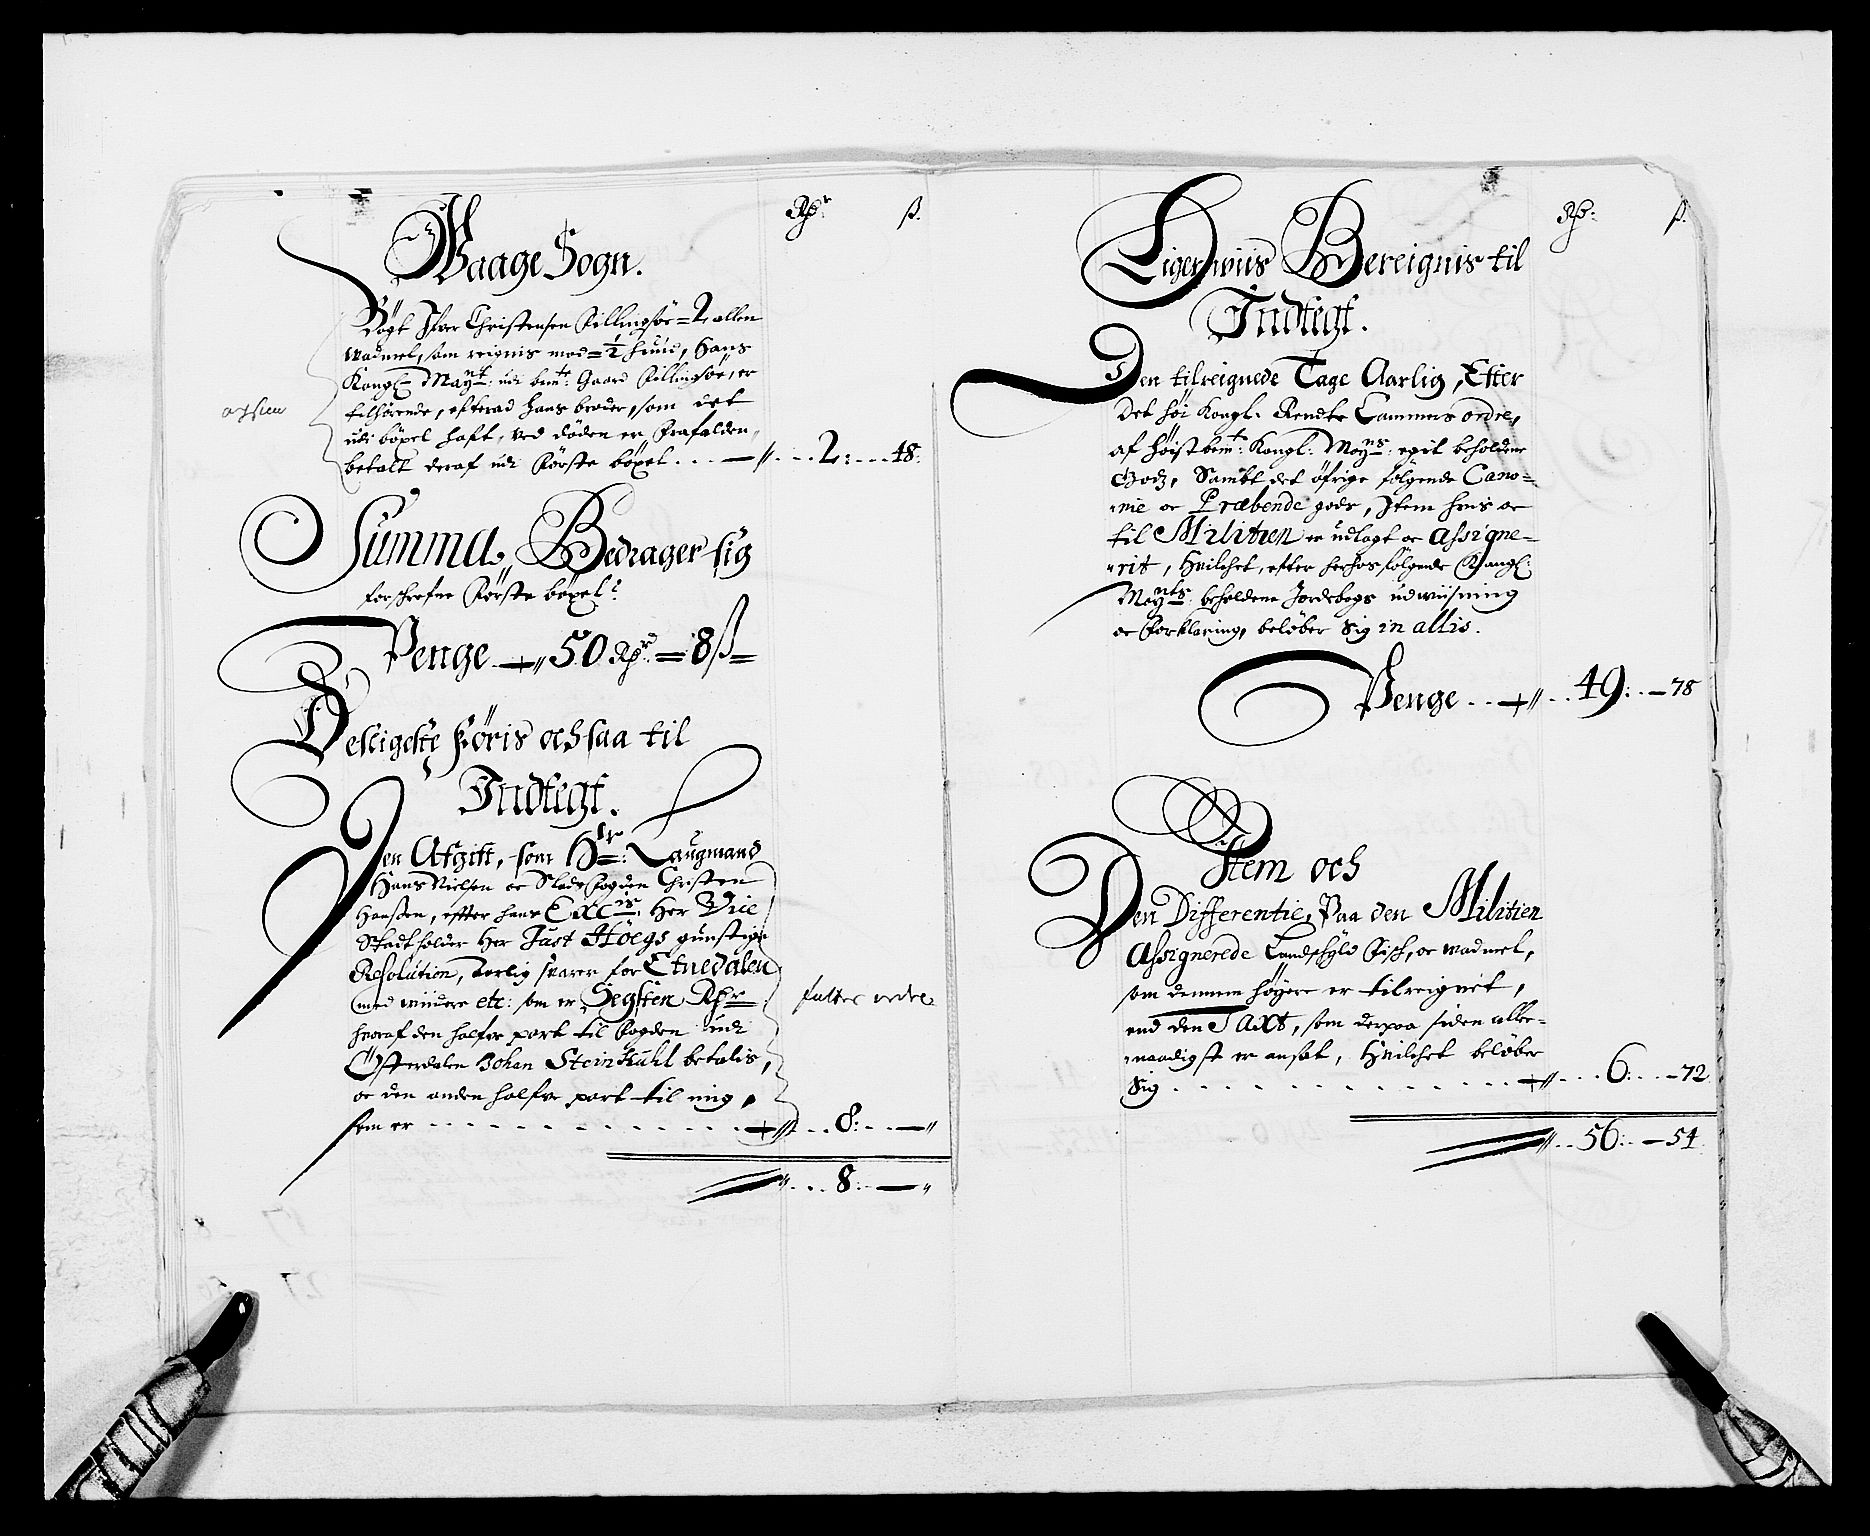 Rdr: ß.
Waage Sogn.
Bögt Ifver Christensen Killingsøe = 2 allen
wadmel, som reignis mod = ½ huud, Hans
Kongl: Mayt: udi bemte: Gaard Killingsøe, er
tilhørende, efterad hans broder, som det
udi böxel haft, ved döden er frafalden,
betalt deraf udi Förste böxel . . . — // . . . 2: . . . 48:
Summa, Bedrager sig
forschrefne Förste böxel:
Penge —//50 Rdr: = 8 ß =
Desligeste föris och saa til
Indtegt.
Den Afgift, som Hr: Laugmand
Hans Nielsen oc Slodsfogden Christen
Hanssen, efter hans Excis: Her Vice
Stadtholder Her Just Høegs gunstige
Resolution, aarlig svarer for Etnedalen
med widere etc: som er Segsten Rdr
hvoraf den halfve part til fogden udi
Østerdalen Johan Steinkuhl betalis,
oc den anden halfve part til mig,
som er . . . . . . . . . — // . . 8: . . — //
// . . . 8: — //
Rdr: ß.
Ligerwiis Bereignis til
Indtegt.
Den tilreignede Tage Aarlig, Efter
Det høi Kongl: Rendte Cammers ordre,
af høistbemte: Kongl: Mayts: egit beholdene
Godz, Sambt det öfrige følgende Cano=
nie oc Præbende gods, Item hvis oc
til Militien er udlagt oc assigne=
rit, Hvilchet, efter herhos følgende Kongl:
Mayts beholdene Jordebogs udwiisning
oc Forklaring, beløber sig in allis.
Penge . . —// . . 49: . — 78
Item och
Den Differentie, Paa den Militien
Assignerede Landschyld Fisch, oc wadmel,
som dennem høyere er tilreignet,
end den Taxt, som derpaa siden aller=
naadigst er ansat, Hvilchet beløber
sig . . . . . . . . . —// . . . 6: . . — 72
// . . 56: . — 54